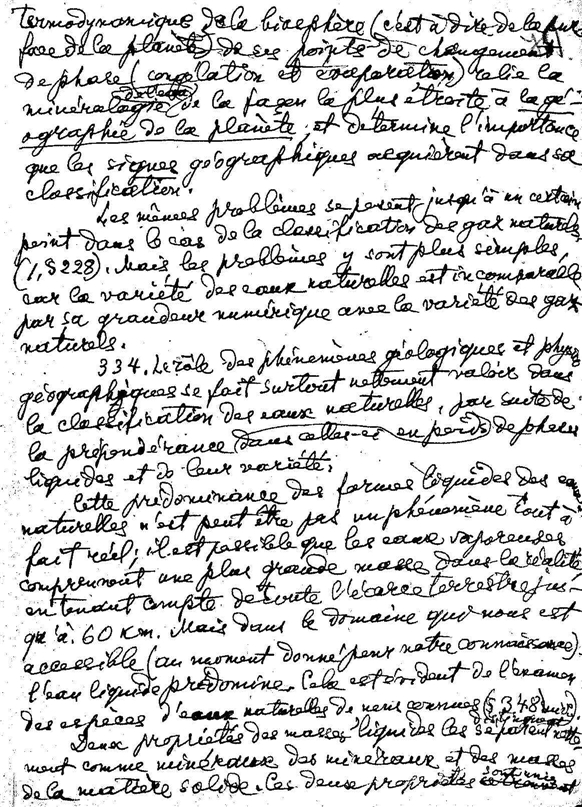 termodynamique de la biosphère (c'est à dire de la sur
face de la planète) de ses points de changement
de phase (congélation et évaporation) relie la
minéralogie de la façon la plus étroite à la gé-
ographie de la planète, et détermine l'importance
que les signes géographiques acquièrent dans sa
classification.
Les mêmes problèmes se posent jusqu'à un certain
point dans le cas de la classification des gaz naturels
(1, § 228). Mais les problèmes y sont plus simples,
car la variété des eaux naturelles est incomparable
par sa grandeur numérique avec la variété des gaz
naturels.
334. Le rôle des phénomènes géologiques et physico
géographiques se fait surtout nettement valoir dans
la classification des eaux naturelles, par suite de
la prépondérance dans celles-ci en poids de phases
liquides et de leur variété.
Cette prédominance des formes liquides des eaux
naturelles n'est peut être pas un phénomène tout à
fait réel; il est possible que les eaux vaporeuses
comprennent une plus grande masse dans la réalité
en tenant compte de toute l'écorce terrestre jus-
qu'à 60 km. Mais dans le domaine qui nous est
accessible (au moment donné pour notre connaissance)
l'eau liquide prédomine. Cela est évident de l'examen
des espèces d'eaux naturelles de nous connues (§ 348 suiv.).
Deux propriétés des masses liquides les séparent nette
ment comme minéraux des minéraux et des masses
de la matière solide. Ces deux propriétés sont unis